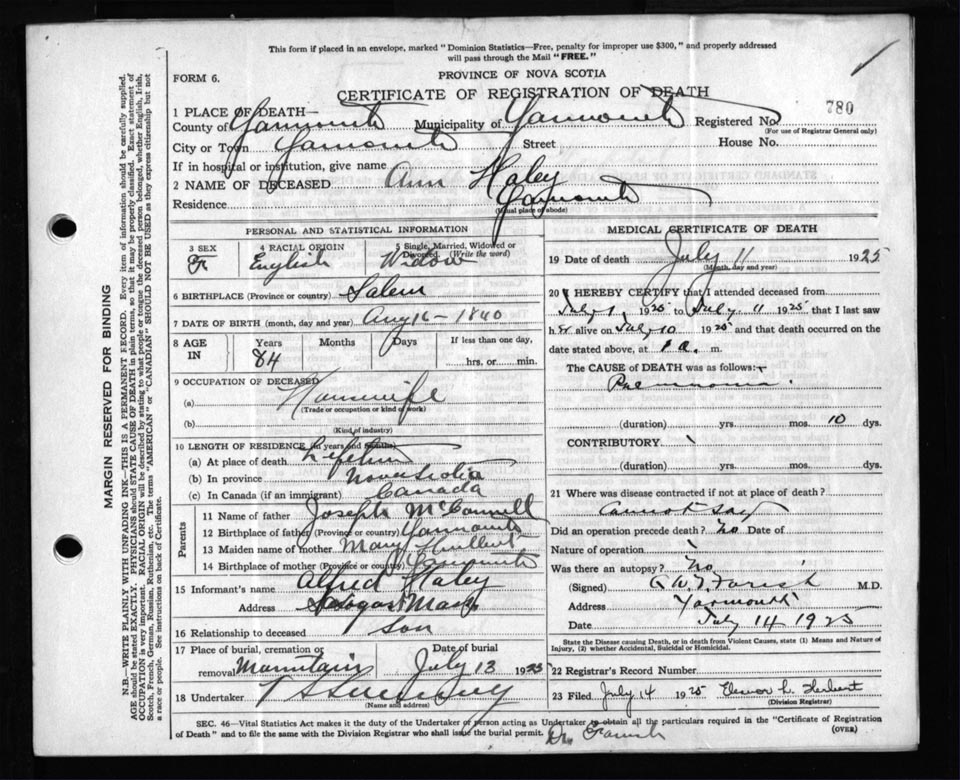 This form if placed in an envelope, marked "Dominion Statistics—Free, penalty for improper use $300," and properly addressed
will pass through the Mail "FREE."
FORM 6.
PROVINCE OF NOVA SCOTIA
CERTIFICATE OF REGISTRATION OF DEATH
780
1 PLACE OF DEATH—
County of Yarmouth Municipality of Yarmouth Registered No.
(For use of Registrar General only)
City or Town Yarmouth Street House No.
If in hospital or institution, give name
2 NAME OF DECEASED Ann Haley
Residence Yarmouth
(Usual place of abode)
PERSONAL AND STATISTICAL INFORMATION
3 SEX 4 RACIAL ORIGIN 5 Single, Married, Widowed or
Divorced. (Write the word)
F English Widow
6 BIRTHPLACE (Province or country) Salem
7 DATE OF BIRTH (month, day and year) Aug 16 - 1840
8 AGE IN Years Months Days If less than one day,
84 hrs. or min.
9 OCCUPATION OF DECEASED
(a) Housewife
(Trade or occupation or kind of work)
(b)
(Kind of industry)
10 LENGTH OF RESIDENCE (in years and months)
(a) At place of death Lifetime
(b) In province Nova Scotia
(c) In Canada (if an immigrant) Canada
Parents
11 Name of father Joseph McConnell
12 Birthplace of father (Province or country) Yarmouth
13 Maiden name of mother Mary
14 Birthplace of mother (Province or country) Yarmouth
15 Informant's name Alfred Haley
Address Mass
16 Relationship to deceased Son
17 Place of burial, cremation or Date of burial
removal Mountain July 13 1925
18 Undertaker
(Name and address)
MEDICAL CERTIFICATE OF DEATH
19 Date of death July 11 1925
(Month, day and year)
20 I HEREBY CERTIFY that I attended deceased from
July 1 1925 to July 11 1925 that I last saw
her alive on July 10 1925 and that death occurred on
the date stated above, at 1 a. m.
The CAUSE OF DEATH was as follows:
Pneumonia.
(duration) yrs. mos. 10 dys.
CONTRIBUTORY
(duration) yrs. mos. dys.
21 Where was disease contracted if not at place of death?
Cannot say
Did an operation precede death? No Date of
Nature of operation
Was there an autopsy? No
(Signed) Farish M.D.
Address Yarmouth
Date July 14 1925
State the Disease causing Death, or in death from Violent Causes, state (1) Means and Nature of
Injury, (2) whether Accidental, Suicidal or Homicidal.
22 Registrar's Record Number
23 Filed July 14 1925 Herbert
(Division Registrar)
SEC. 46—Vital Statistics Act makes it the duty of the Undertaker or person acting as Undertaker to obtain all the particulars required in the "Certificate of Registration
of Death" and to file the same with the Division Registrar who shall issue the burial permit.
(OVER)
Dr. Farish
MARGIN RESERVED FOR BINDING
N.B.—WRITE PLAINLY WITH UNFADING INK—THIS IS A PERMANENT RECORD. Every item of information should be carefully supplied.
AGE should be stated EXACTLY. PHYSICIANS should STATE CAUSE OF DEATH in plain terms, so that it may be properly classified. Exact statement of
OCCUPATION is very important. RACIAL ORIGIN will be described by stating to what people or tongue the deceased person belonged, whether English, Irish,
Scotch, French, German, Russian, Ruthenian, etc. The terms "AMERICAN" or "CANADIAN" SHOULD NOT BE USED as they express citizenship but not
a race or people. See instructions on back of Certificate.